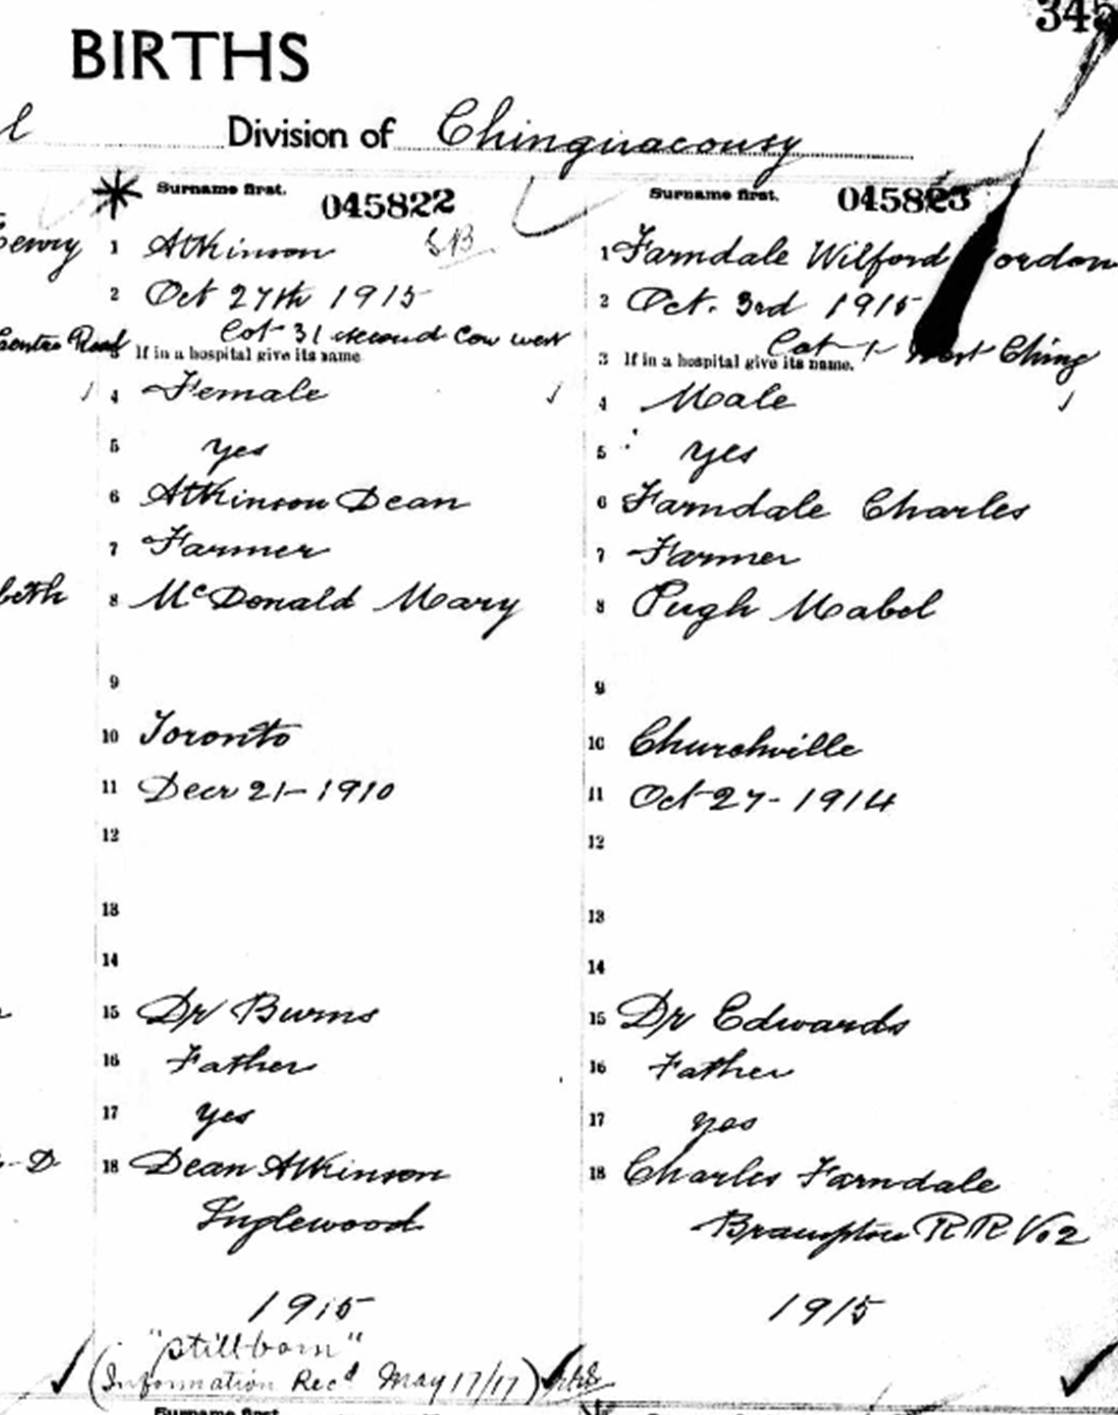 345
BIRTHS
l Division of Chinguacousy
Surname first. 045822
enry 1 Atkinson SB
2 Oct 27th 1915
Lot 31 second Con west
Centre Road 3 If in a hospital give its name
4 Female
5 yes
6 Atkinson Dean
7 Farmer
beth 8 McDonald Mary
9
10 Toronto
11 Decr 21-1910
12
13
14
15 Dr Burns
16 Father
17 yes
D 18 Dean Atkinson
Inglewood
1915
"stillborn"
(Information Recd May 17/17)
Surname first.
Surname first. 045823
1 Farndale Wilford ordon
2 Oct. 3rd 1915
Lot 1- West Ching
3 If in a hospital give its name.
4 Male
5 yes
6 Farndale Charles
7 Farmer
8 Pugh Mabel
9
10 Churchville
11 Oct-27-1914
12
13
14
15 Dr Edwards
16 Father
17 yes
18 Charles Farndale
Brampton RR No 2
1915